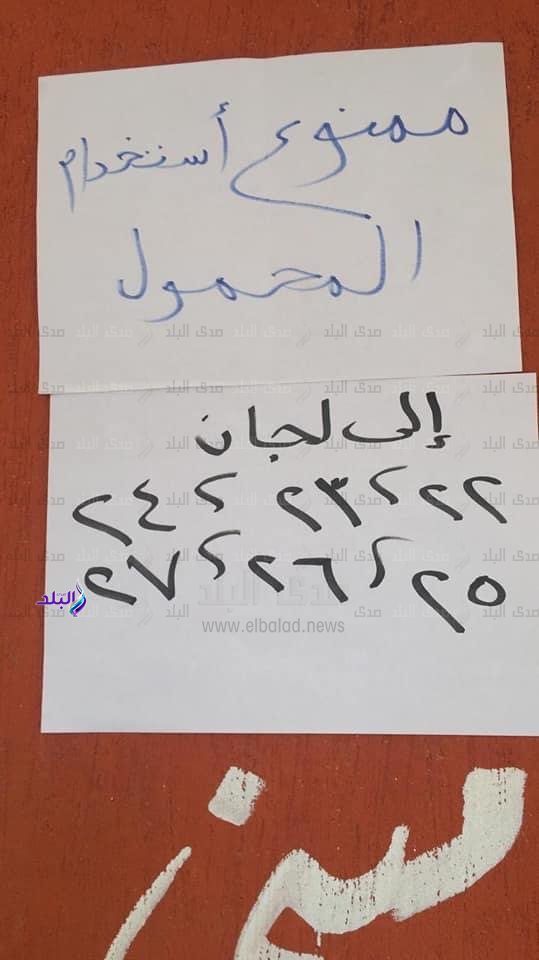 ممنوع أستخدام
المحمول
إلى لجان
٢٢ ، ٢٣ ، ٢٤
٢٥ ، ٢٦ ، ٢٧
صدى البلد
البلد
www.elbalad.news